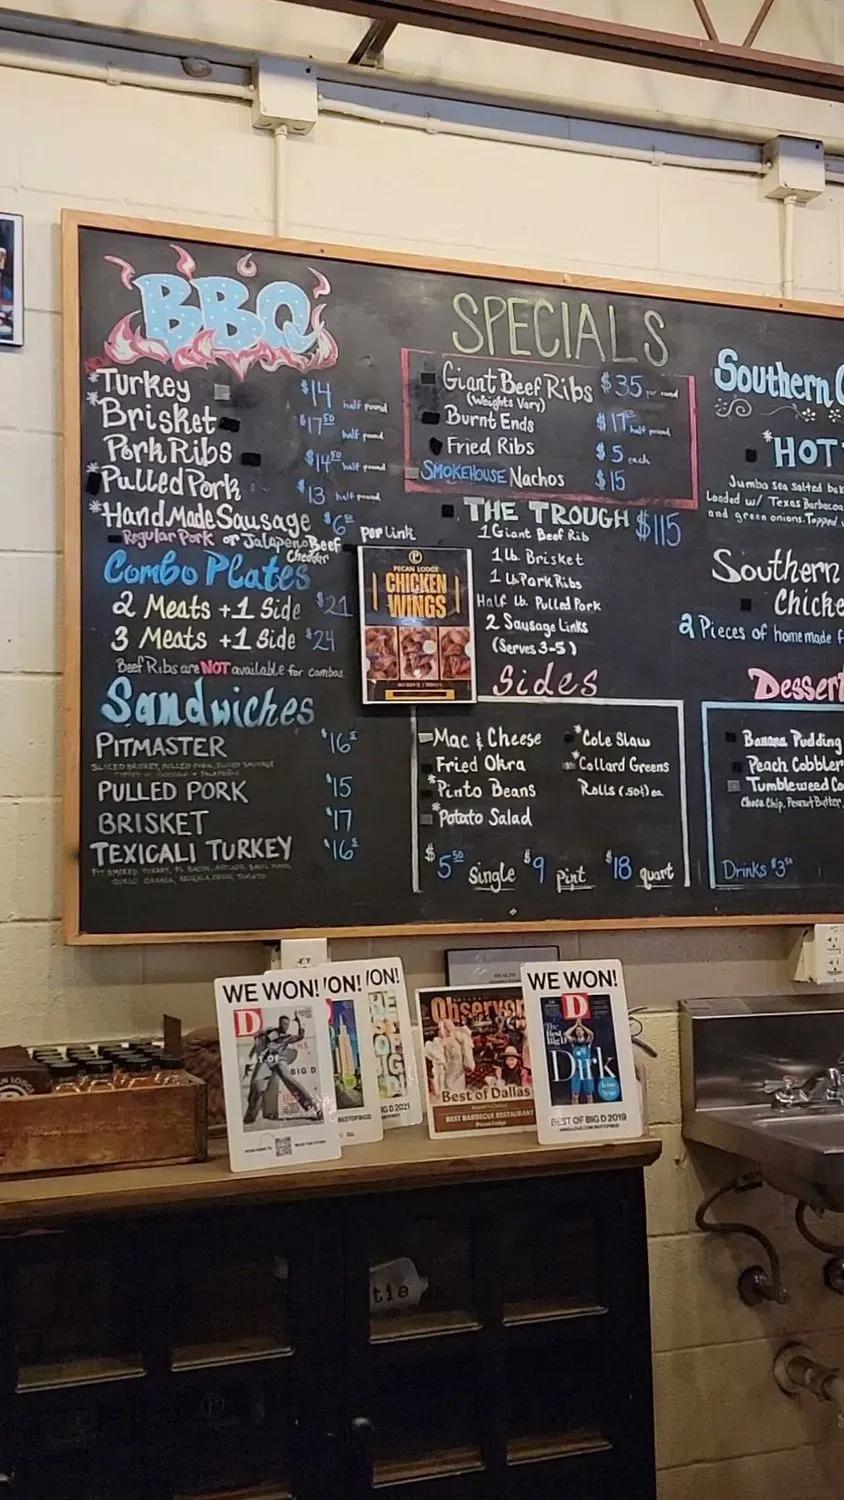 BBQ
*Turkey $14 half pound
*Brisket $17.50 half pound
Pork Ribs $14.50 half pound
*Pulled Pork $13 half pound
*Hand Made Sausage $6 per Link
Regular Pork or Jalapeno Beef
Cheddar
Combo Plates
2 Meats +1 Side $21
3 Meats +1 Side $24
Beef Ribs are NOT available for combos
Sandwiches
PITMASTER $16
SLICED BRISKET, PULLED PORK, SLICED SAUSAGE
PULLED PORK $15
BRISKET $17
TEXICALI TURKEY $16
SPECIALS
Giant Beef Ribs $35 pound
(Weights Vary)
Burnt Ends $17 half pound
Fried Ribs $5 each
SMOKEHOUSE Nachos $15
THE TROUGH $115
1 Giant Beef Rib
1 lb. Brisket
1 Lb Pork Ribs
Half Lb. Pulled Pork
2 Sausage Links
(Serves 3-5)
PECAN LODGE
CHICKEN
WINGS
Sides
Mac & Cheese
Fried Okra
*Pinto Beans
*Potato Salad
*Cole Slaw
*Collard Greens
Rolls (.50) ea
$5.50 Single $9 Pint $18 quart
Southern
*HOT
Jumbo sea salted
Loaded w/ Texas
and green onions. Topped
Southern
Chicke
2 Pieces of homemade
Dessert
Banana Pudding
Peach Cobbler
Tumbleweed Co
Choco Chip, Peanut Butter,
Drinks $3.50
WE WON!
D
BIG D
'ON!
BESTOFBIGD
'ON!
BIG D 2021
Observer
Best of Dallas
BEST BARBECUE RESTAURANT
Pecan Lodge
WE WON!
D
The
Best
Big D
Dirk
BEST OF BIG D 2019
tie